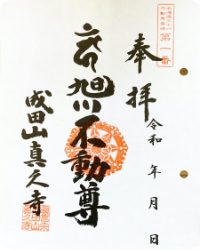 第一番
奉拝
令和 年 月 日
旭川不動尊
成田山真久寺